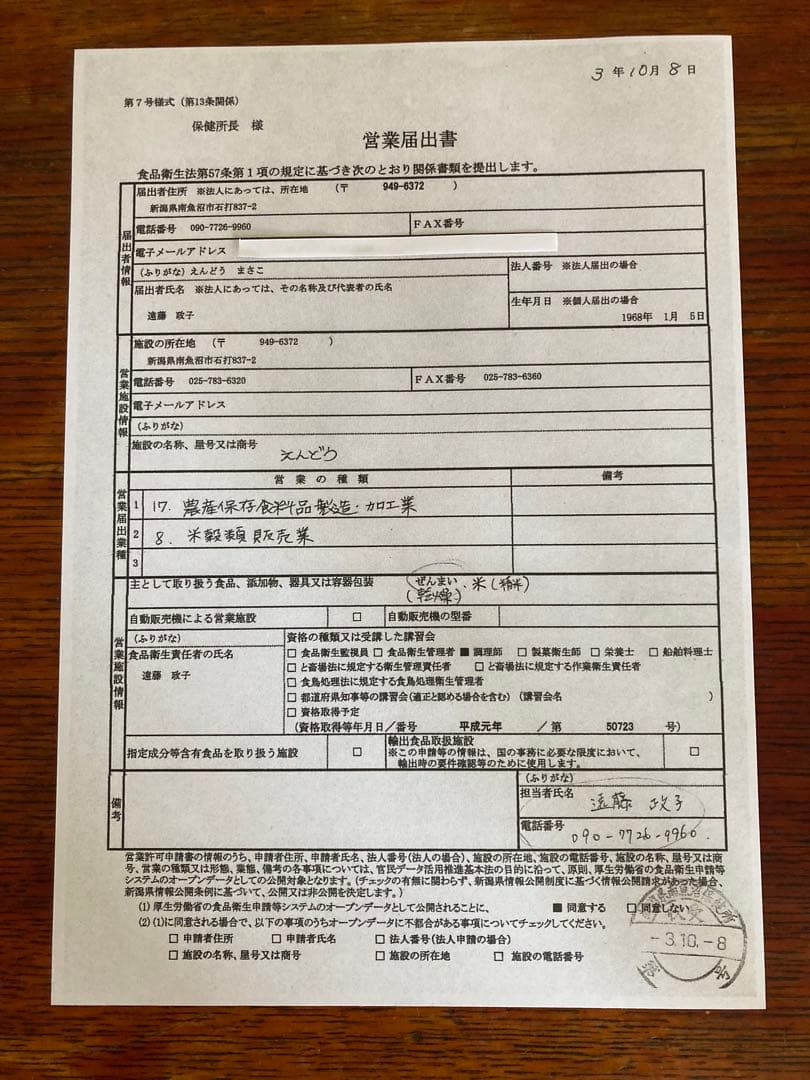 3年10月8日
第7号様式（第13条関係）
保健所長 様
営業届出書
食品衛生法第57条第1項の規定に基づき次のとおり関係書類を提出します。
届出者情報
届出者住所 ※法人にあっては、所在地 （〒 949-6372 ）
新潟県南魚沼市石打837-2
電話番号 090-7726-9960 FAX番号
電子メールアドレス
（ふりがな）えんどう まさこ
法人番号 ※法人届出の場合
届出者氏名 ※法人にあっては、その名称及び代表者の氏名
遠藤 政子
生年月日 ※個人届出の場合
1968年 1月 5日
営業施設情報
施設の所在地 （〒 949-6372 ）
新潟県南魚沼市石打837-2
電話番号 025-783-6320 FAX番号 025-783-6360
電子メールアドレス
（ふりがな）
施設の名称、屋号又は商号
えんどう
営業届出業種
営業の種類 備考
1 17. 農産保存食料品製造・加工業
2 8. 米穀類販売業
3
営業施設情報
主として取り扱う食品、添加物、器具又は容器包装 ぜんまい(乾燥)・米(精米)
自動販売機による営業施設 □ 自動販売機の型番
（ふりがな）
食品衛生責任者の氏名
遠藤 政子
資格の種類又は受講した講習会
□ 食品衛生監視員 □ 食品衛生管理者 ■ 調理師 □ 製菓衛生師 □ 栄養士 □ 船舶料理士
□ と畜場法に規定する衛生管理責任者 □ と畜場法に規定する作業衛生責任者
□ 食鳥処理法に規定する食鳥処理衛生管理者
□ 都道府県知事等の講習会（適正と認める場合を含む）（講習会名 ）
□ 資格取得予定
（資格取得等年月日／番号 平成元年 ／第 50723 号）
指定成分等含有食品を取り扱う施設 □
輸出食品取扱施設
※この申請等の情報は、国の事務に必要な限度において、
輸出時の要件確認等のために使用します。 □
備考
（ふりがな）
担当者氏名
遠藤 政子
電話番号
090-7726-9960
営業許可申請書の情報のうち、申請者住所、申請者氏名、法人番号(法人の場合)、施設の所在地、施設の電話番号、施設の名称、屋号又は商
号、営業の種類又は形態、業態、備考の各事項については、官民データ活用推進基本法の目的に沿って、原則、厚生労働省の食品衛生申請等
システムのオープンデータとしての公開対象となります。（チェックの有無に関わらず、新潟県情報公開制度に基づく情報公開請求があった場合、
新潟県情報公開条例に基づいて、公開又は非公開を決定します。）
(1) 厚生労働省の食品衛生申請等システムのオープンデータとして公開されることに、 ■ 同意する □ 同意しない
(2) (1)に同意される場合で、以下の事項のうちオープンデータに不都合がある事項についてチェックしてください。
□ 申請者住所 □ 申請者氏名 □ 法人番号(法人申請の場合)
□ 施設の名称、屋号又は商号 □ 施設の所在地 □ 施設の電話番号
-3.10.-8
号